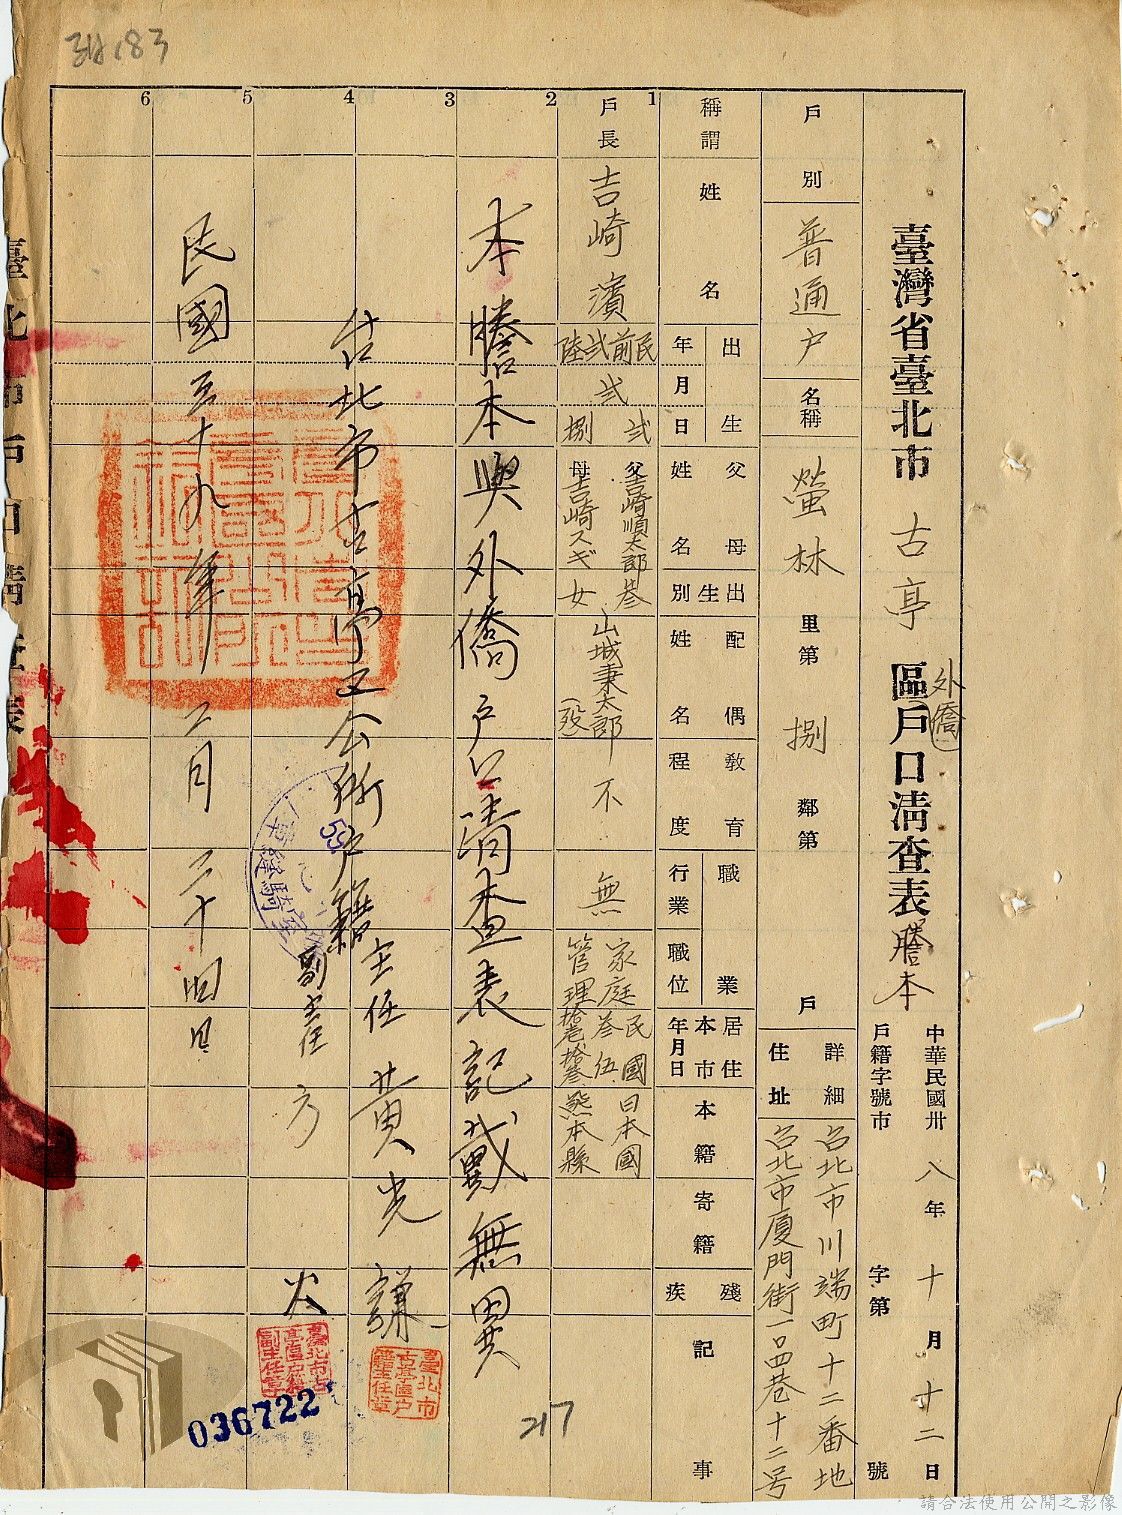 343183
臺灣省臺北市 古亭 區外僑戶口清查表謄本
中華民國卅八年十月十二日
戶籍字號市 字第 號
戶別 普通戶 名稱 螢林 里第 捌 鄰第 戶
詳細住址 台北市川端町十二番地
台北市厦門街一品巷十二号
稱謂 姓名 出生年月日 父母姓名 出生別 配偶姓名 教育程度 職業 行業 職位 居住本市年月日 本籍 寄籍 殘疾 記事
1 戶長 吉崎濱 民前弍陸 弍 弍捌 父吉崎順太郎 母吉崎スギ 叁女 山城秉太郎(歿) 不 無 家庭管理 民國叁伍拾壱拾叁 日本國熊本縣
2
3
4
5
6
本謄本與外僑戶口清查表記載無異
台北市古亭区公所戶籍主任 黃光謙
副主任 方火
民國五十九年二月二十四日
臺北市古亭區戶籍主任章
臺北市古亭區戶籍副主任章
59
036722
217
臺北市戶口清查表
請合法使用公開之影像